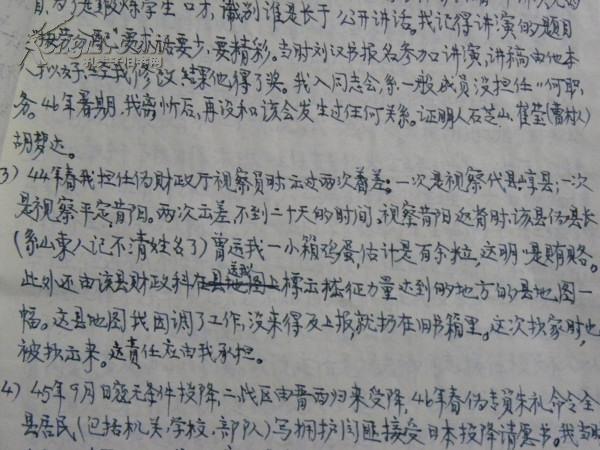 育,为了是锻炼学生口才,识别谁是长于公开讲话。我记得讲演的题目
要求话要少,要精彩。当时刘汉书报名参加讲演,讲稿由他本
拟好经我修改,结果他得了奖。我入同志会,系一般成员没担任何职
务。46年暑期,我离忻后,再没和该会发生过任何关系。证明人石芝山、崔莹(曹村人)
胡梦达。
3) 44年春我担任伪财政厅视察员时出过两次着差:一次是视察代县崞县;一次
是视察平定昔阳。两次出差不到二十天的时间。视察昔阳返省时该县伪县长
(系山东人记不清姓名了)曾送我一小箱鸡蛋,估计是百余粒,这明明是贿赂。
此外还由该县财政科送我标示摧征力量达到的地方的县地图一
幅。这县地图我因调了工作,没来得及上报,就扔在旧书箱里。这次抄家时也
被抄出来。这责任应由我承担。
4) 45年9月日寇无条件投降,二战区由晋西归来受降,46年春伪专员朱礼命令全
县居民(包括机关,学校,部队)写拥护阎匪接受日本投降请愿书。我当时